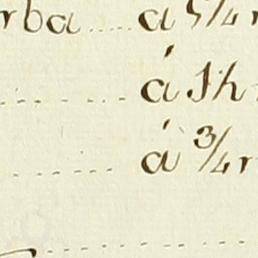 rba ..... á 5/4 r
..... á 1 h
..... á 3/4 r